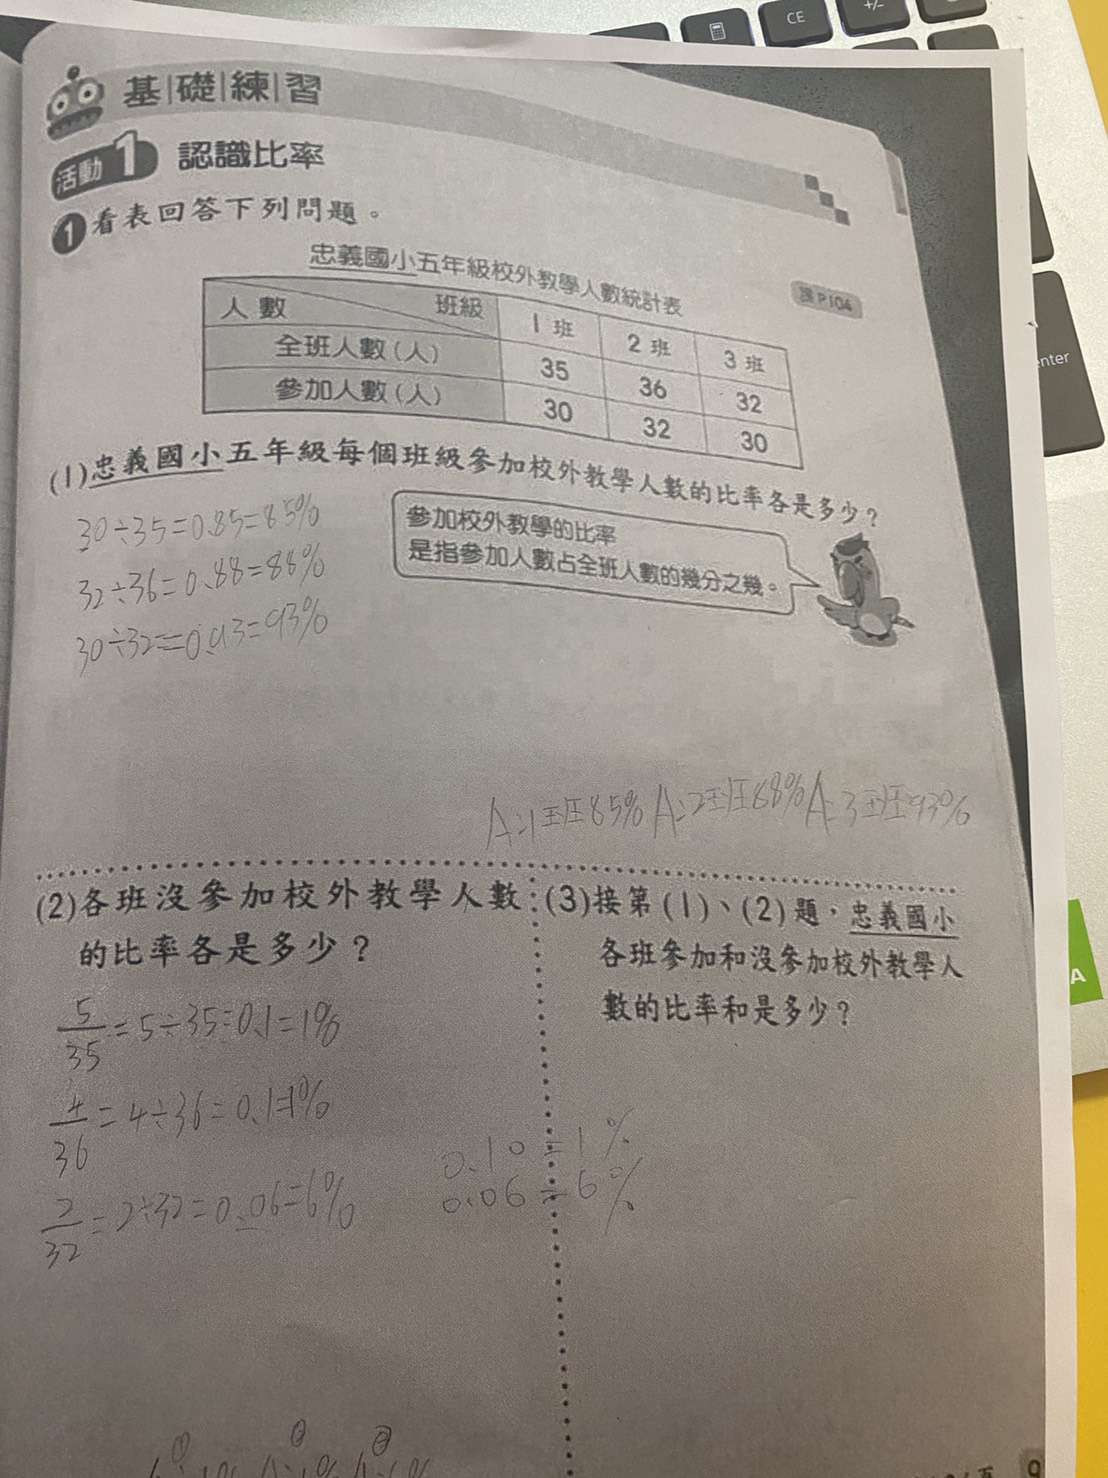 CE
+/-
基礎練習
活動1 認識比率
1 看表回答下列問題。
忠義國小五年級校外教學人數統計表
課P104
人數 班級 1班 2班 3班
全班人數(人) 35 36 32
參加人數(人) 30 32 30
enter
(1)忠義國小五年級每個班級參加校外教學人數的比率各是多少？
30÷35=0.85=85%
32÷36=0.88=88%
30÷32=0.93=93%
參加校外教學的比率
是指參加人數占全班人數的幾分之幾。
A:1班85% A:2班88% A:3班93%
(2)各班沒參加校外教學人數
的比率各是多少？
5/35=5÷35=0.1=1%
4/36=4÷36=0.1=1%
2/32=2÷32=0.06=6%
0.10=1%
0.06=6%
(3)接第(1)、(2)題，忠義國小
各班參加和沒參加校外教學人
數的比率和是多少？
A
9